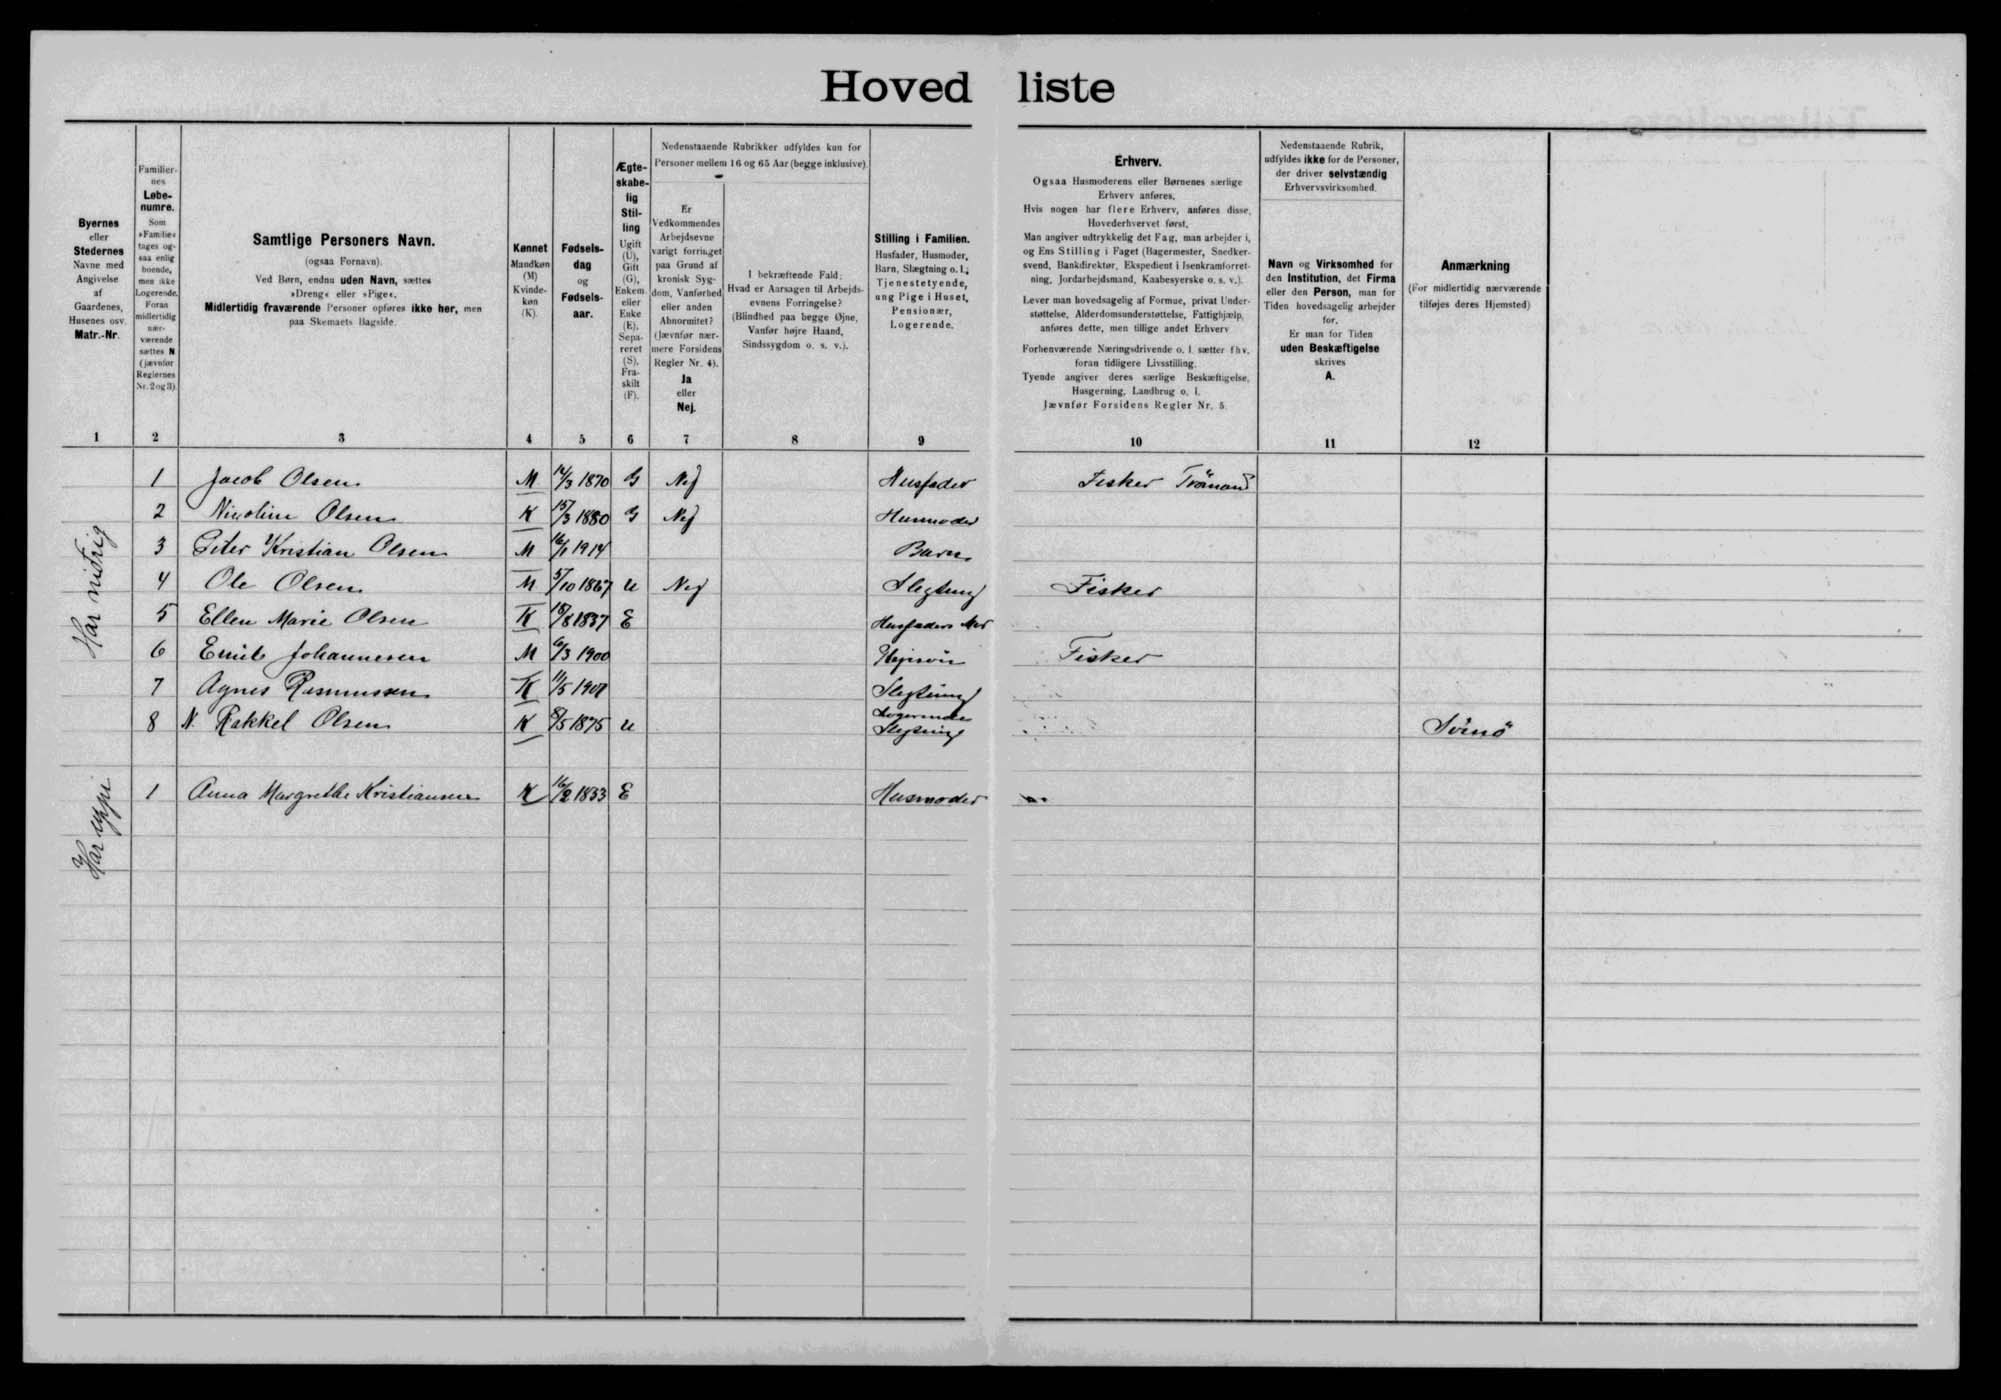 Hovedliste
Byernes
eller
Stedernes
Navne med
Angivelse
af
Gaardenes,
Husenes osv.
Matr.-Nr.
Familier-
nes
Løbe-
numre.
Som
»Familie«
tages og-
saa enlig
boende,
men ikke
Logerende.
Foran
midlertidig
nær-
værende
sættes N
(jævnfør
Reglernes
Nr. 2 og 3).
Samtlige Personers Navn.
(ogsaa Fornavn).
Ved Børn, endnu uden Navn, sættes
»Dreng« eller »Pige«.
Midlertidig fraværende Personer opføres ikke her, men
paa Skemaets Bagside.
Kønnet
Mandkøn
(M)
Kvinde-
køn
(K).
Fødsels-
dag
og
Fødsels-
aar.
Ægte-
skabe-
lig
Stil-
ling
Ugift
(U),
Gift
(G),
Enkem.
eller
Enke
(E),
Sepa-
reret
(S),
Fra-
skilt
(F).
Nedenstaaende Rubrikker udfyldes kun for
Personer mellem 16 og 65 Aar (begge inklusive).
Er
Vedkommendes
Arbejdsevne
varigt forringet
paa Grund af
kronisk Syg-
dom, Vanførhed
eller anden
Abnormitet?
(Jævnfør nær-
mere Forsidens
Regler Nr. 4).
Ja
eller
Nej.
I bekræftende Fald:
Hvad er Aarsagen til Arbejds-
evnens Forringelse?
(Blindhed paa begge Øjne,
Vanfør højre Haand,
Sindssygdom o. s. v.).
Stilling i Familien.
Husfader, Husmoder,
Barn, Slægtning o. l.;
Tjenestetyende,
ung Pige i Huset,
Pensionær,
Logerende.
Erhverv.
Ogsaa Husmoderens eller Børnenes særlige
Erhverv anføres.
Hvis nogen har flere Erhverv, anføres disse,
Hovederhvervet først.
Man angiver udtrykkelig det Fag, man arbejder i,
og Ens Stilling i Faget (Bagermester, Snedker-
svend, Bankdirektør, Ekspedient i Isenkramforret-
ning, Jordarbejdsmand, Kaabesyerske o. s. v.).
Lever man hovedsagelig af Formue, privat Under-
støttelse, Alderdomsunderstøttelse, Fattighjælp,
anføres dette, men tillige andet Erhverv
Forhenværende Næringsdrivende o. l. sætter fhv.
foran tidligere Livsstilling.
Tyende angiver deres særlige Beskæftigelse,
Husgerning, Landbrug o. l.
Jævnfør Forsidens Regler Nr. 5.
Nedenstaaende Rubrik,
udfyldes ikke for de Personer,
der driver selvstændig
Erhvervsvirksomhed.
Navn og Virksomhed for
den Institution, det Firma
eller den Person, man for
Tiden hovedsagelig arbejder
for.
Er man for Tiden
uden Beskæftigelse
skrives
A.
Anmærkning
(For midlertidig nærværende
tilføjes deres Hjemsted)
1 2 3 4 5 6 7 8 9 10 11 12
Har nistrig
1 Jacob Olsen M 14/3 1870 G Nej Husfader Fisker
2 Nicoline Olsen K 15/3 1880 G Nej Husmoder
3 Peter Kristian Olsen M 16/1 1914 Barn
4 Ole Olsen M 5/10 1867 U Nej Slegtning Fisker
5 Ellen Marie Olsen K 18/8 1837 E Husfaders Mor
6 Emil Johannesen M 6/3 1900 Plejesön Fisker
7 Agnes Rasmussen K 11/5 1907 Slegtning
8 N. Rakkel Olsen K 8/5 1875 U Logerende Slegtning Svinö
Har uppi
1 Anna Margrethe Kristiansen K 16/2 1833 E Husmoder